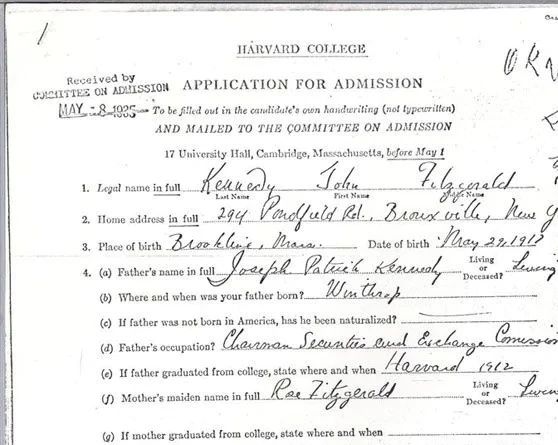 1
HARVARD COLLEGE
Received by
COMMITTEE ON ADMISSION
MAY -8 1935
APPLICATION FOR ADMISSION
To be filled out in the candidate's own handwriting (not typewritten)
AND MAILED TO THE COMMITTEE ON ADMISSION
17 University Hall, Cambridge, Massachusetts, before May 1
1. Legal name in full Kennedy John Fitzgerald
Last Name First Name Middle Name
2. Home address in full 294 Pondfield Rd., Bronxville, New Y
3. Place of birth Brookline, Mass. Date of birth May 29, 1917
4. (a) Father's name in full Joseph Patrick Kennedy Living or Deceased? Living
(b) Where and when was your father born? Winthrop
(c) If father was not born in America, has he been naturalized?
(d) Father's occupation? Chairman Securities and Exchange Comission
(e) If father graduated from college, state where and when Harvard 1912
(f) Mother's maiden name in full Rose Fitzgerald Living or Deceased? Living
(g) If mother graduated from college, state where and when